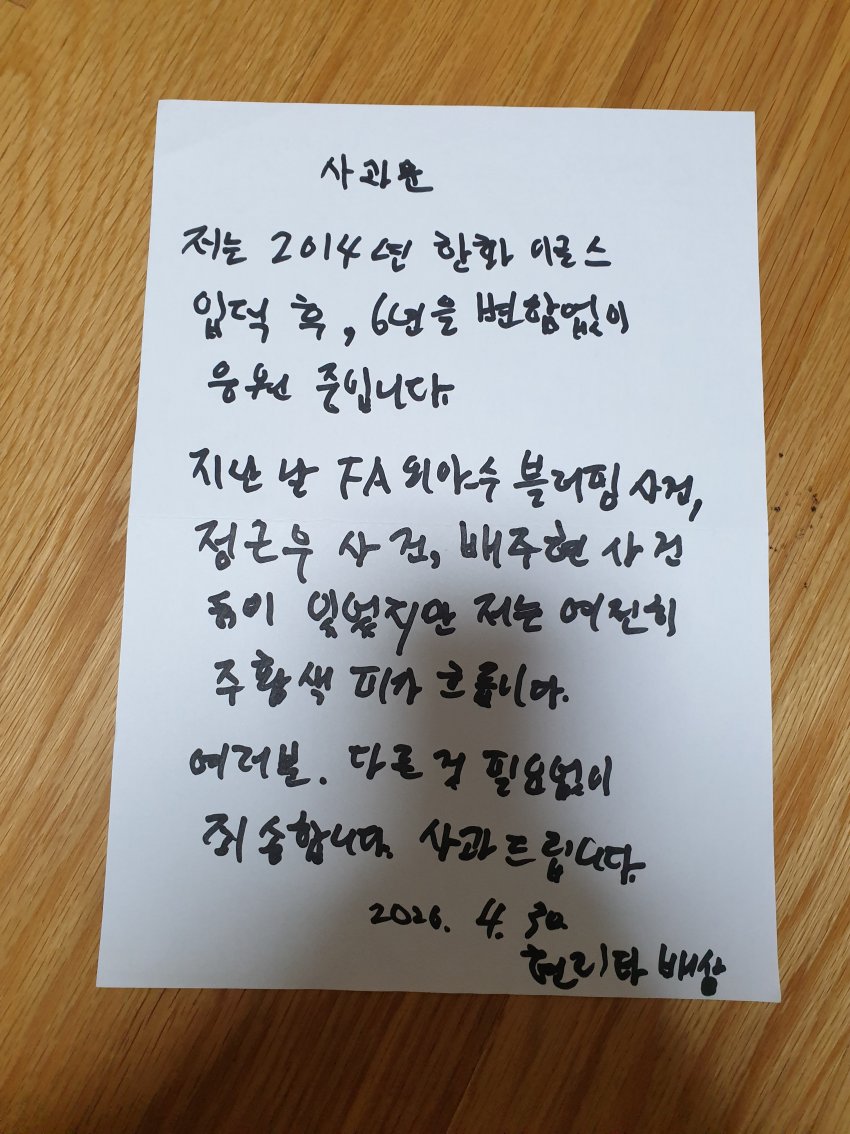 사과문
저는 2014년 한화 이글스
입덕 후, 6년을 변함없이
응원 중입니다.
지난 날 FA 외야수 블러핑 사건,
정근우 사건, 배주현 사건
등이 있었지만 저는 여전히
주황색 피가 흐릅니다.
여러분. 다른 것 필요없이
죄송합니다. 사과드립니다.
2020. 4. 30
현리타 배상